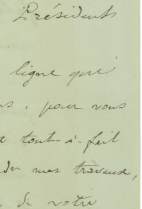 Président
ligne que
s, pour vous
e tout-à-fait
de mes travaux,
de votre